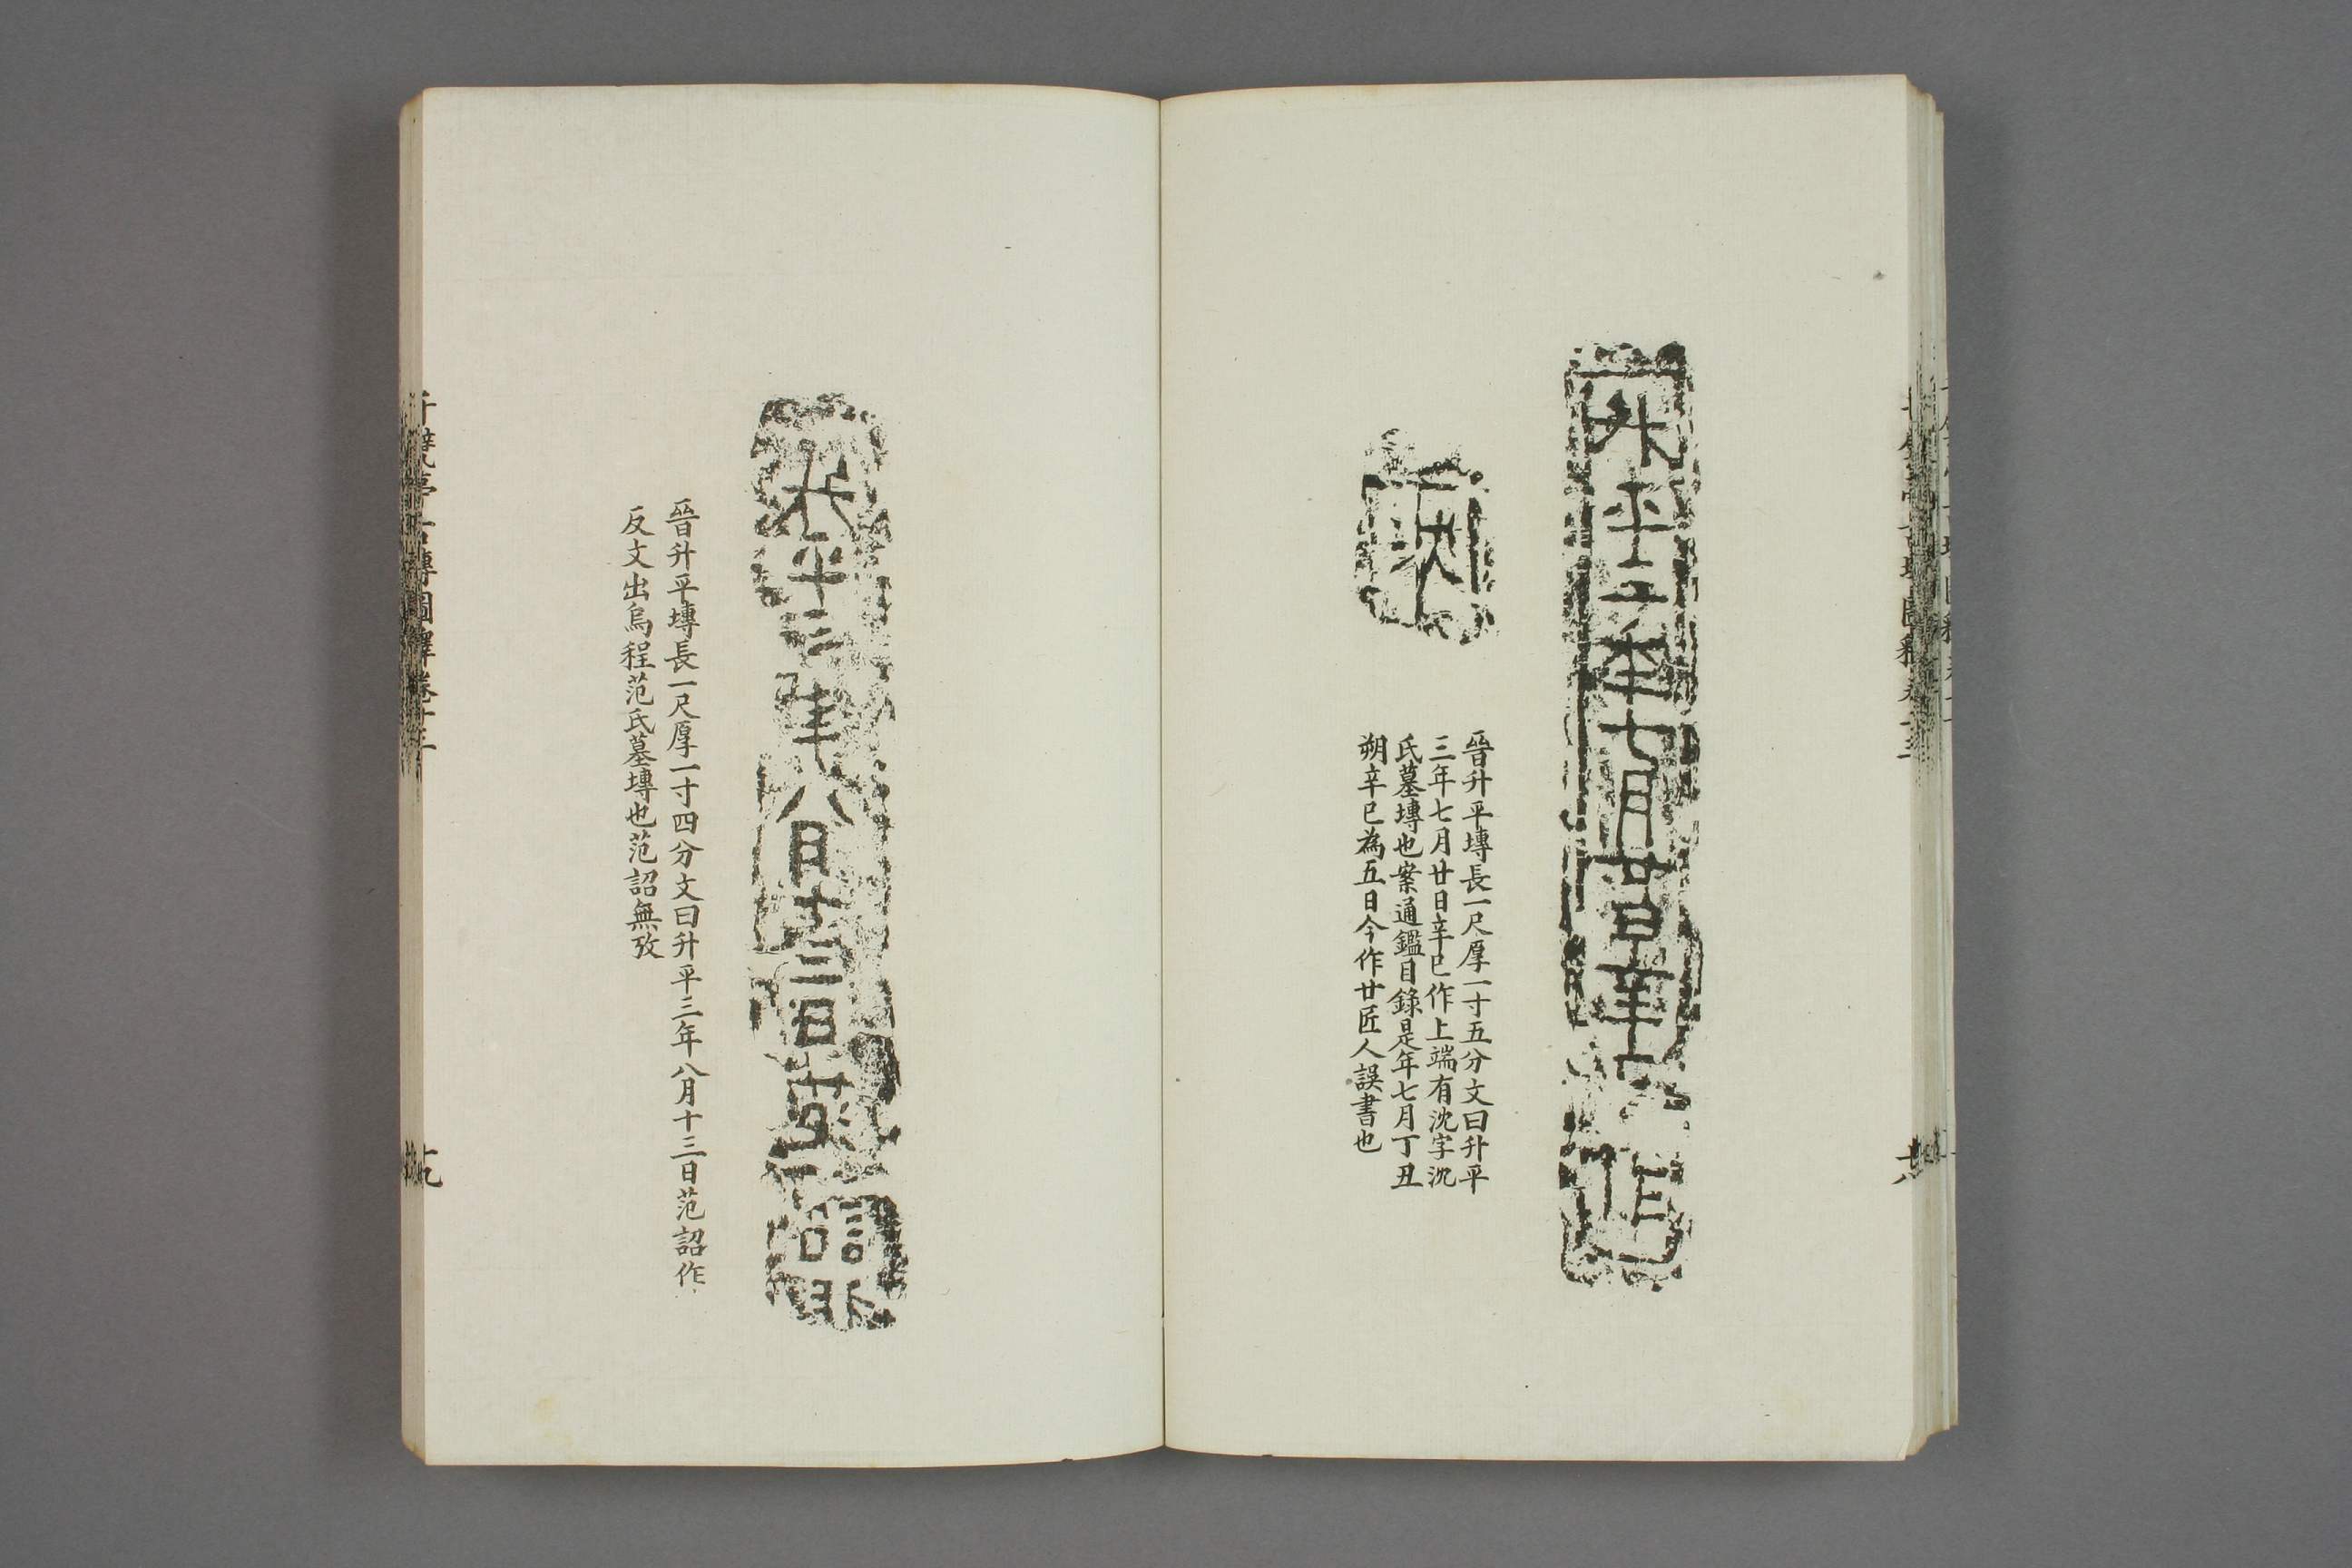 升平三年七月廿日辛巳作
沈
晉升平塼長一尺厚一寸五分文曰升平
三年七月廿日辛巳作上端有沈字沈
氏墓塼也案通鑑目錄是年七月丁丑
朔辛巳為五日今作廿匠人誤書也
升平三年八月十三日范詔作
晉升平塼長一尺厚一寸四分文曰升平三年八月十三日范詔作
反文出烏程范氏墓塼也范詔無攷
千甓亭古塼圖釋卷十二
十九